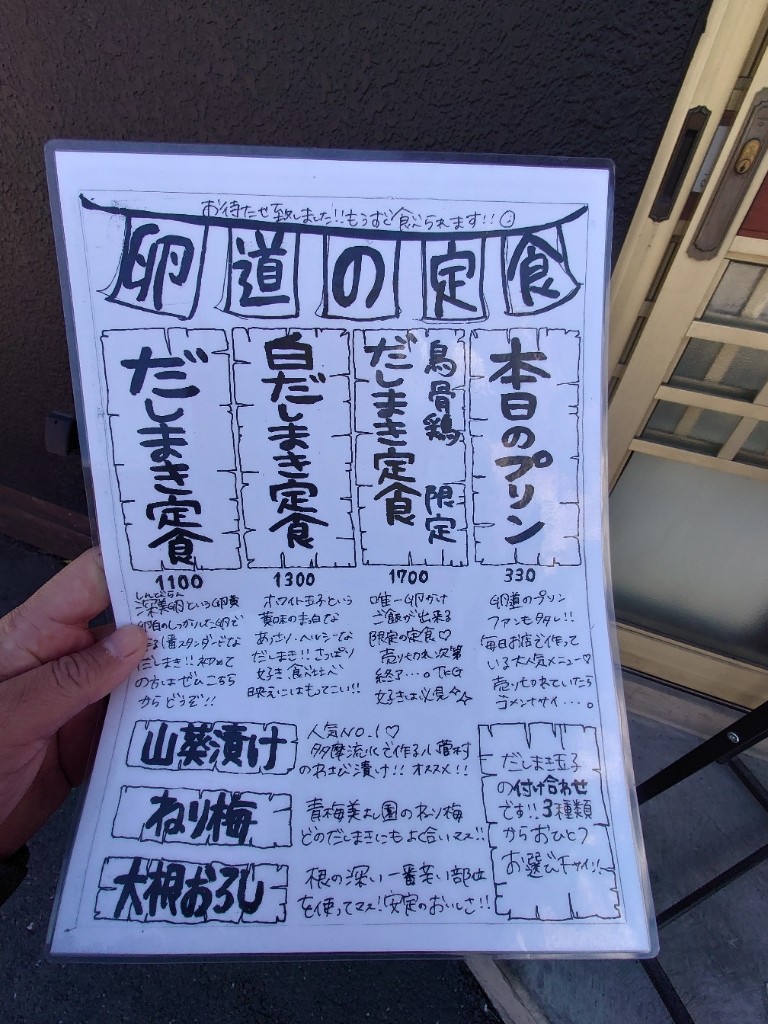 お待たせ致しました!!もうすぐ食べられます!!
卵道の定食
だしまき定食
1100
しんびらん
深美卵という卵黄
卵白のしっかりした卵で
作る1番スタンダードな
だしまき!!初めて
の方はぜひこちら
からどうぞ!!
白だしまき定食
1300
ホワイト玉子という
黄味のまっ白な
あっさり・ヘルシーな
だしまき!!さっぱり
好き、食べ比べ
映えにはもってこい!!
烏骨鶏 限定
だしまき定食
1700
唯一卵かけ
ご飯が出来る
限定の定食♡
売り切れ次第
終了…。TKG
好きは必見☆☆
本日のプリン
330
卵道のプリン
ファンも多い!!
毎日お店で作って
いる大人気メニュー♡
売り切れていたら
ゴメンナサイ…。
山葵漬け
人気NO.1♡
多摩流水で作る小菅村
のわさび漬け!!オススメ!!
ねり梅
青梅美よし園のねり梅
どのだしまきにもよく合いマス!!
大根おろし
根の深い一番辛い部位
を使ってマス!安定のおいしさ!!
だしま玉子
の付け合わせ
です!!3種類
からおひとつ
お選び下サイ!!